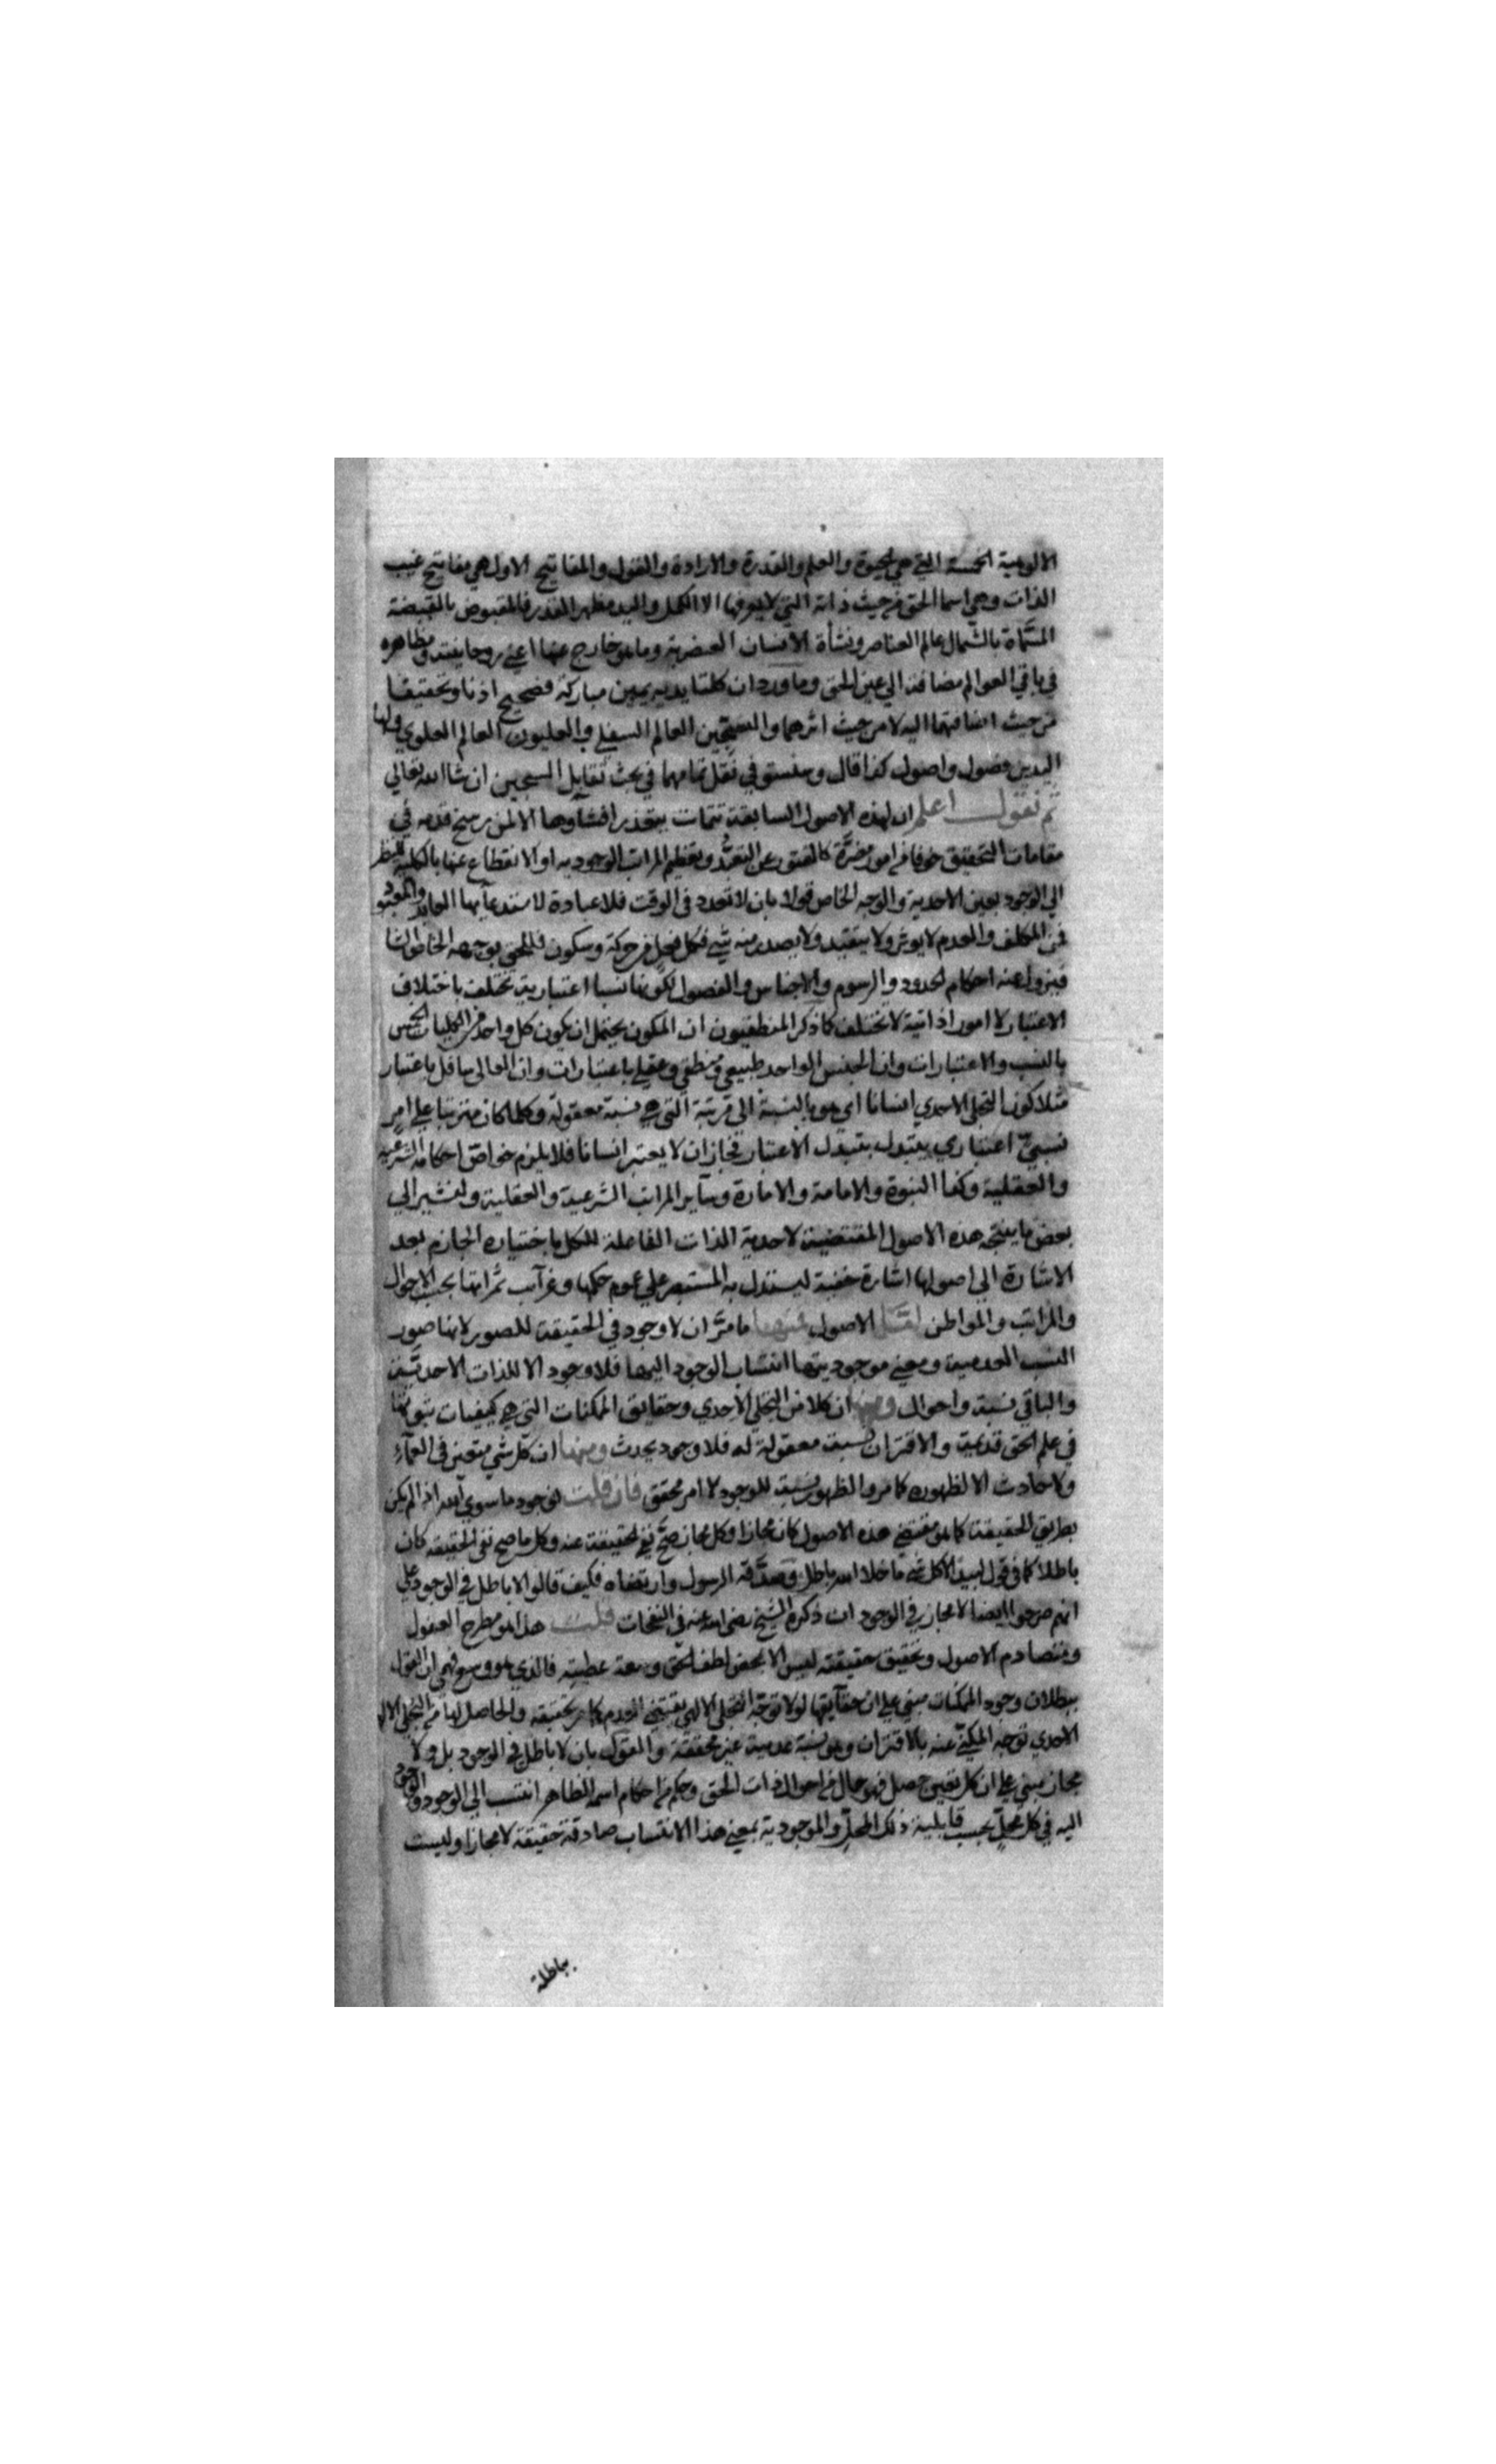 الالوهية الخمسة التي هي الحيوة والعلم والقدرة والارادة والقول والمفاتيح الاول هي مفاتيح غيب
الذات وهي اسما الحق من حيث ذاته التي لا يعرفها الا الكمل واليد مظهر القدرة فالمقبوض بالقبضة
المسماة بالشمال عالم العناصر ونشأة الانسان العنصرية وما هو خارج عنها اعني روحانيته ومظاهره
في باقي العوالم مضافة الي عين الحق وما ورد ان كلتا يديه يمين مباركة فصحيح اذنا وتحقيقا
من حيث اضافتهما اليه لا من حيث اثرهما والسجين العالم السفلي والعليون العالم العلوي ولها
اليدين فصول واصول كذا قال وسنستوفي نقل تمامهما في بحث تقابل السجين ان شا الله تعالي
ثم نقول اعلم ان لهذه الاصول السابقة تتمات يتعذر افشاؤها الا لمن رسخ قدمه في
مقامات التحقيق خوفا من امور مضرة كالفتور عن التعبد وتعظيم المراتب الوجودية او الانقطاع عنها بالكلية للنظر
الي الوجود بعين الاحدية والوجه الخاص قولا بان لا تعدد في الوقت فلا عبادة لاستدعآئها العابد والمعبود
فمن المكلف والعدم لا يوثر ولا يتقيد ولا يصدر منه شي فكل فعل من حركة وسكون فللحق بوجهه الخاص
فيزول عنه احكام الحدود والرسوم والاجناس والفصول لكونها نسبا اعتبارية تختلف باختلاف
الاعتبار لا امورا ذاتية لا تختلف كما ذكر المنطقيون ان المكون يحتمل ان يكون كل واحد من الكليات الخمس
بالنسب والاعتبارات وان الجنس الواحد طبيعي ومنطقي وعقلي باعتبارات وان العالي سافل باعتبار
مثلا كون التجلي الاحدي انسانا اي هو بالنسبة الي مرتبة التي هي نسبة معقولة وكلما كان مترتبا علي امر
نسبي اعتباري يتبدل بتبدل الاعتبار فجاز ان لا يعتبر انسانا فلا يلزم خواص احكامه الشرعية
والعقلية وكذا النبوة والامامة والامارة وسآير المراتب الشرعية والعقلية ولنشير الي
بعض ما ينتجه هذه الاصول المقتضية لاحدية الذات الفاعلة للكل باختياره الجازم بعد
الاشارة الي اصولها اشارة خفية ليستدل به المستبصر علي عموم حكمها وغرآئب ثمراتها بحسب الاحوال
والمراتب والمواطن الاصول فمنها ما مر ان لا وجود في الحقيقة للصور لانها صور
النسب العدمية ومعني موجوديتها انتساب الوجود اليها فلا وجود الا للذات الاحدية
والباقي نسبة واحوال ومنها ان كلا من التجلي الاحدي وحقايق الممكنات التي هي كيفيات ثبوتها
في علم الحق قديمة والاقتران نسبة معقولة له فلا وجود يحدث ومنها ان كل شي متعين في العمآء
ولا حادث الا لظهوره كما مر والظهور نسبة للوجود لا امر محقق فان قلت لوجود ما سوي الله اذا لم يكن
بطريق الحقيقة كما هو مقتضي هذه الاصول كان مجازا وكل مجاز صح نفي الحقيقة عنه وكل ما صح نفي الحقيقه كان
باطلا كما في قول لبيد الا كل شي ما خلا الله باطل وصدقه الرسول وارتضاه فكيف قالوا لا باطل في الوجود علي
انهم صرحوا ايضا لا مجاز في الوجود ان ذكره الشيخ رضي الله عنه في النفحات قلت هذا هو مطرح العقول
ومتصادم الاصول وتحقيق حقيقته ليس الا بمحض لطف الحق وسعة عطيته فالذي هو وسع فهمي ان القول
ببطلان وجود الممكنات مبني علي ان حقآيقها لولا توجه التجلي الالهي يقتضي العدم كما مر تحقيقه والحاصل لها من التجلي الالهي
الاحدي توجه المكني عنه بالاقتران وهو نسبة عدمية غير محققة والقول بان لا باطل في الوجود بل ولا
مجاز مبني علي ان كل تعين حصل فهو حال من احوال ذات الحق وحكم من احكام اسمه الظاهر انتسب الي الوجود والوجود
اليه في كل محل بحسب قابلية ذلك المحل والموجودية بمعني هذا الانتساب صادقة حقيقة لا مجازا وليست
بباطلة